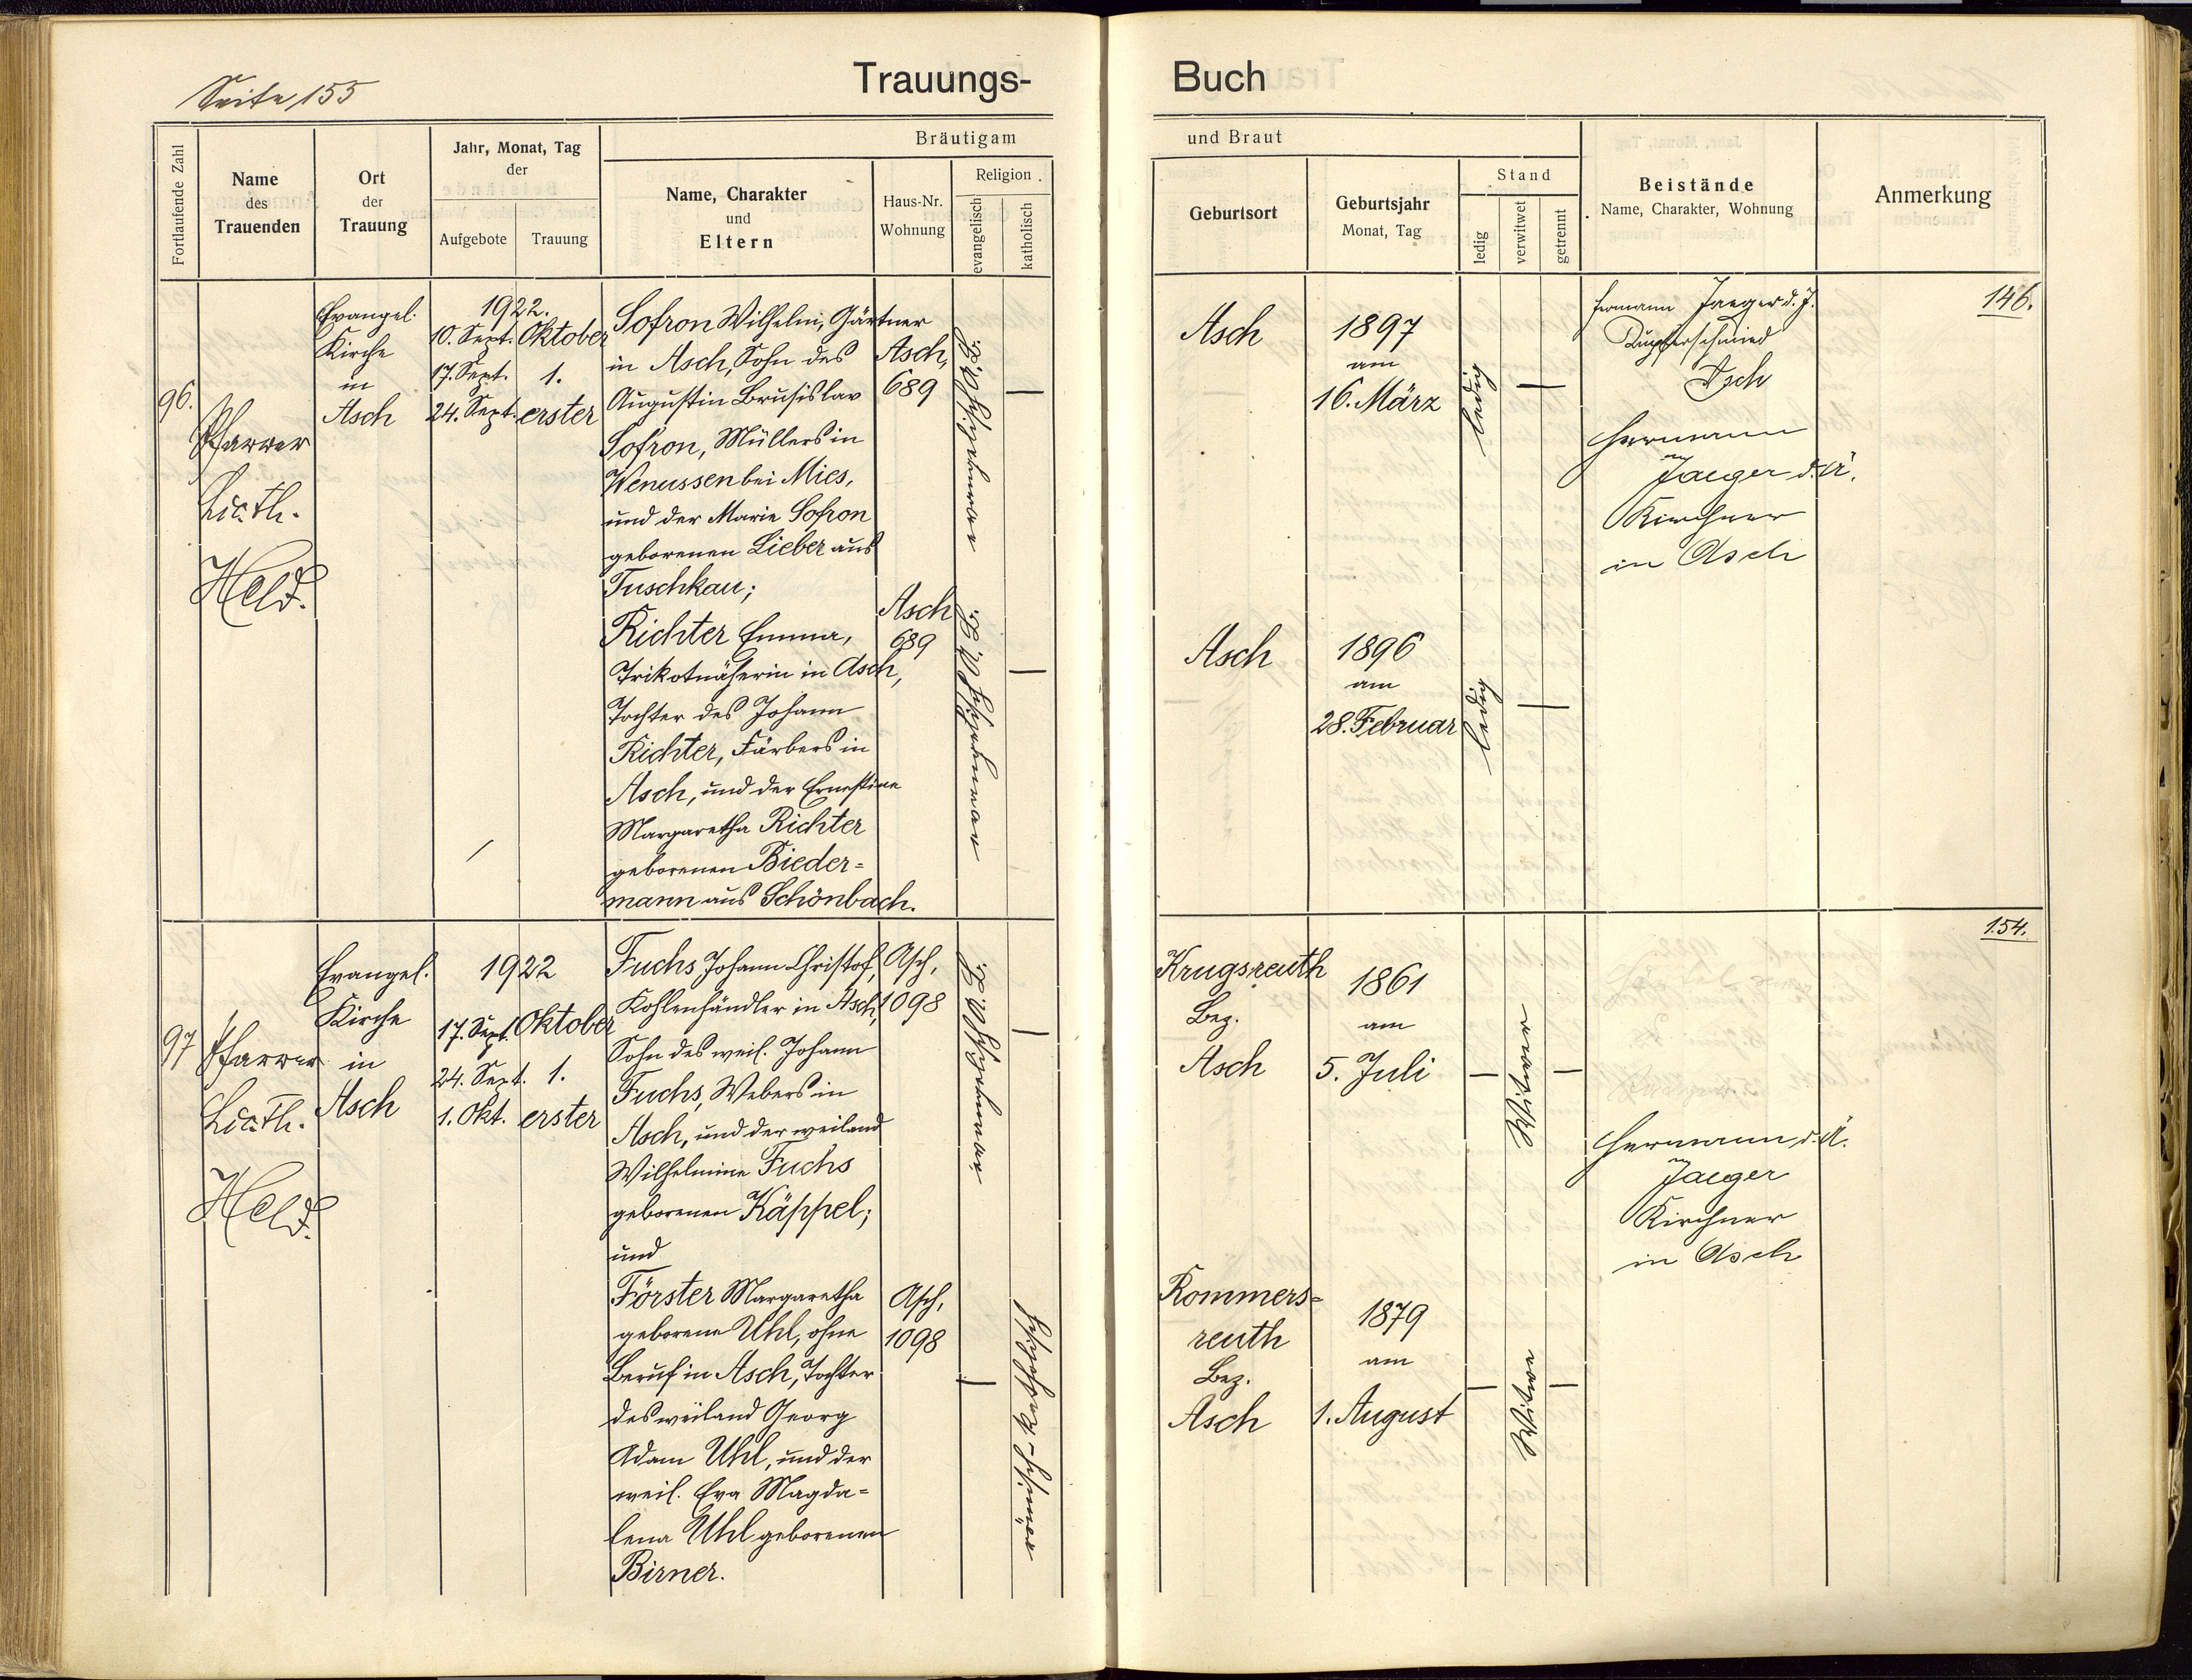 Seite 155
Trauungs-
Buch
Fortlaufende Zahl
Name
des
Trauenden
Ort
der
Trauung
Jahr, Monat, Tag
der
Aufgebote
Trauung
Bräutigam
Name, Charakter
und
Eltern
Haus-Nr.
Wohnung
Religion
evangelisch
katholisch
und Braut
Geburtsort
Geburtsjahr
Monat, Tag
Stand
ledig
verwitwet
getrennt
Beistände
Name, Charakter, Wohnung
Anmerkung
96.
Pfarrer
Lic. Th.
Held.
Evangel.
Kirche
in
Asch
1922.
10. Sept.
17. Sept.
24. Sept.
Oktober
1.
erster
Sofron Wilhelm, Gärtner
in Asch, Sohn des
Augustin Brusislav
Sofron, Müllers in
Wenussen bei Mies,
und der Marie Sofron
geborenen Lieber aus
Tuschkau;
Richter Emma,
Trikotnäherin in Asch,
Tochter des Johann
Richter, Färbers in
Asch, und der Ernestine
Margaretha Richter
geborenen Bieder=
mann aus Schönbach.
Asch,
689
Asch
689
Asch
1897
am
16. März
ledig
Asch
1896
am
28. Februar
ledig
Hermann Jaeger d. J.
Kupferschmied
Asch
Hermann
Jaeger d. Ä.
Kirchner
in Asch
146.
97
Pfarrer
Lic. Th.
Held.
Evangel.
Kirche
in
Asch
1922
17. Sept.
24. Sept.
1. Okt.
Oktober
1.
erster
Fuchs Johann Christof,
Kohlenhändler in Asch,
Sohn des weil. Johann
Fuchs, Webers in
Asch, und der weiland
Wilhelmine Fuchs
geborenen Käppel;
und
Förster Margaretha
geborene Uhl, ohne
Beruf in Asch, Tochter
des weiland Georg
Adam Uhl, und der
weil. Eva Magda=
lena Uhl geborenen
Birner.
Asch,
1098
Asch,
1098
römisch-katholisch
Krugsreuth
Bez.
Asch
1861
am
5. Juli
Witwer
Rommers=
reuth
Bez.
Asch
1879
am
1. August
Witwe
Hermann d. Ä.
Jaeger
Kirchner
in Asch
154.